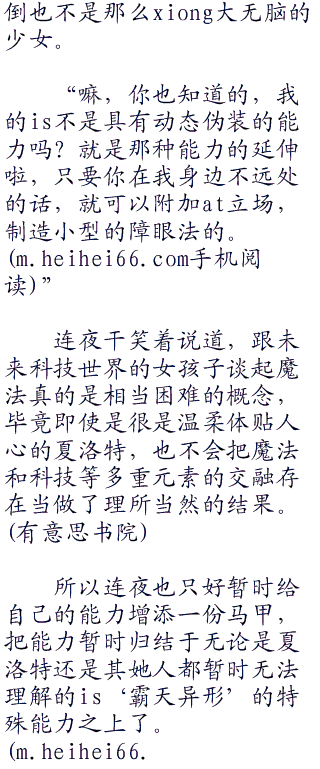 倒也不是那么xiong大无脑的
少女。
“嘛，你也知道的，我
的is不是具有动态伪装的能
力吗？就是那种能力的延伸
啦，只要你在我身边不远处
的话，就可以附加at立场，
制造小型的障眼法的。
(m.heihei66.com手机阅
读)”
连夜干笑着说道，跟未
来科技世界的女孩子谈起魔
法真的是相当困难的概念，
毕竟即使是很是温柔体贴人
心的夏洛特，也不会把魔法
和科技等多重元素的交融存
在当做了理所当然的结果。
(有意思书院)
所以连夜也只好暂时给
自己的能力增添一份马甲，
把能力暂时归结于无论是夏
洛特还是其她人都暂时无法
理解的is‘霸天异形’的特
殊能力之上了。
(m.heihei66.